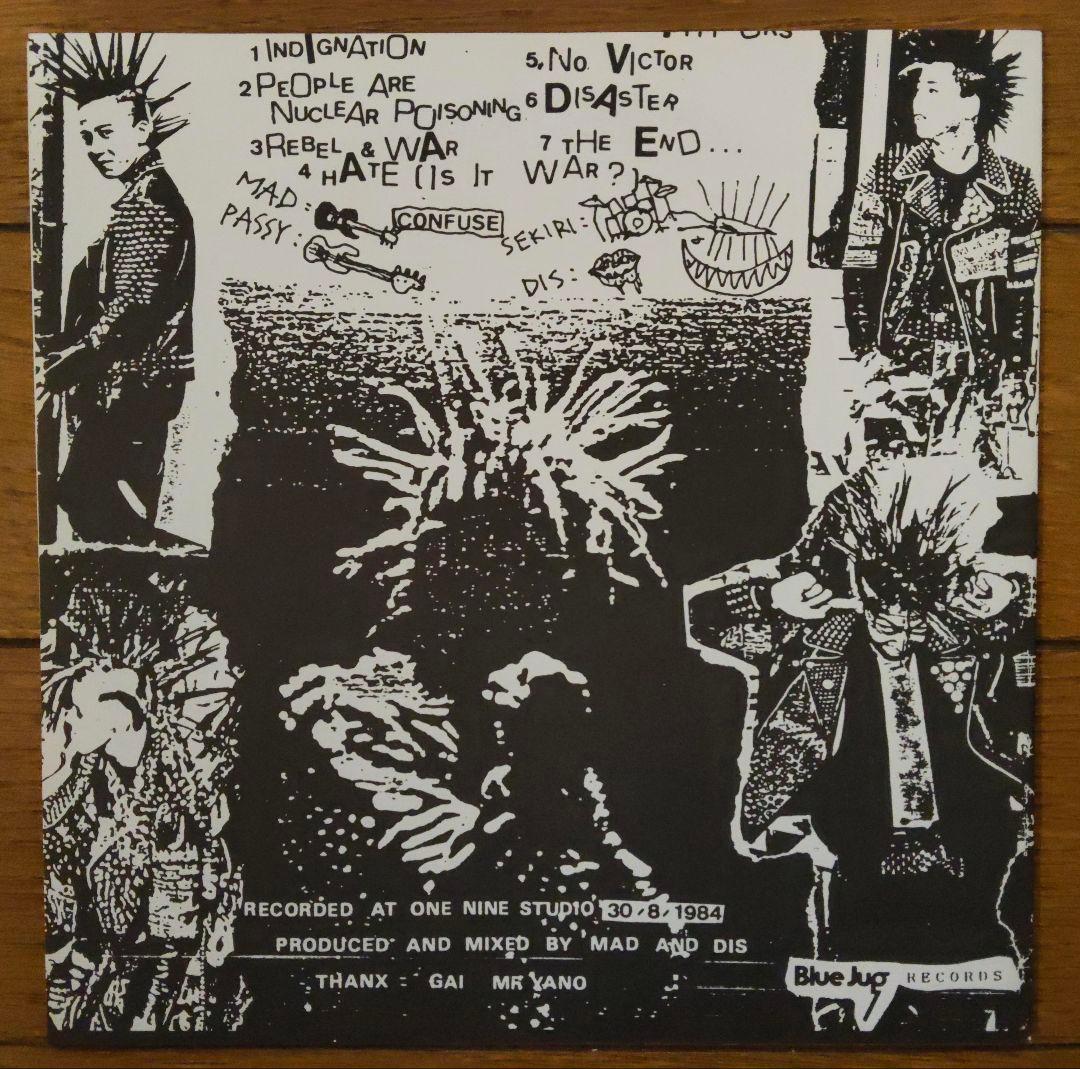 1 INDIGNATION
2 PEOPLE ARE
NUCLEAR POISONING
3 REBEL & WAR
4 HATE (IS IT WAR?)
5. NO VICTOR
6 DISASTER
7 THE END...
MAD:
PASSY:
CONFUSE
SEKIRI:
DIS:
RECORDED AT ONE NINE STUDIO 30/8/1984
PRODUCED AND MIXED BY MAD AND DIS
THANX : GAI MR YANO
Blue Jug RECORDS